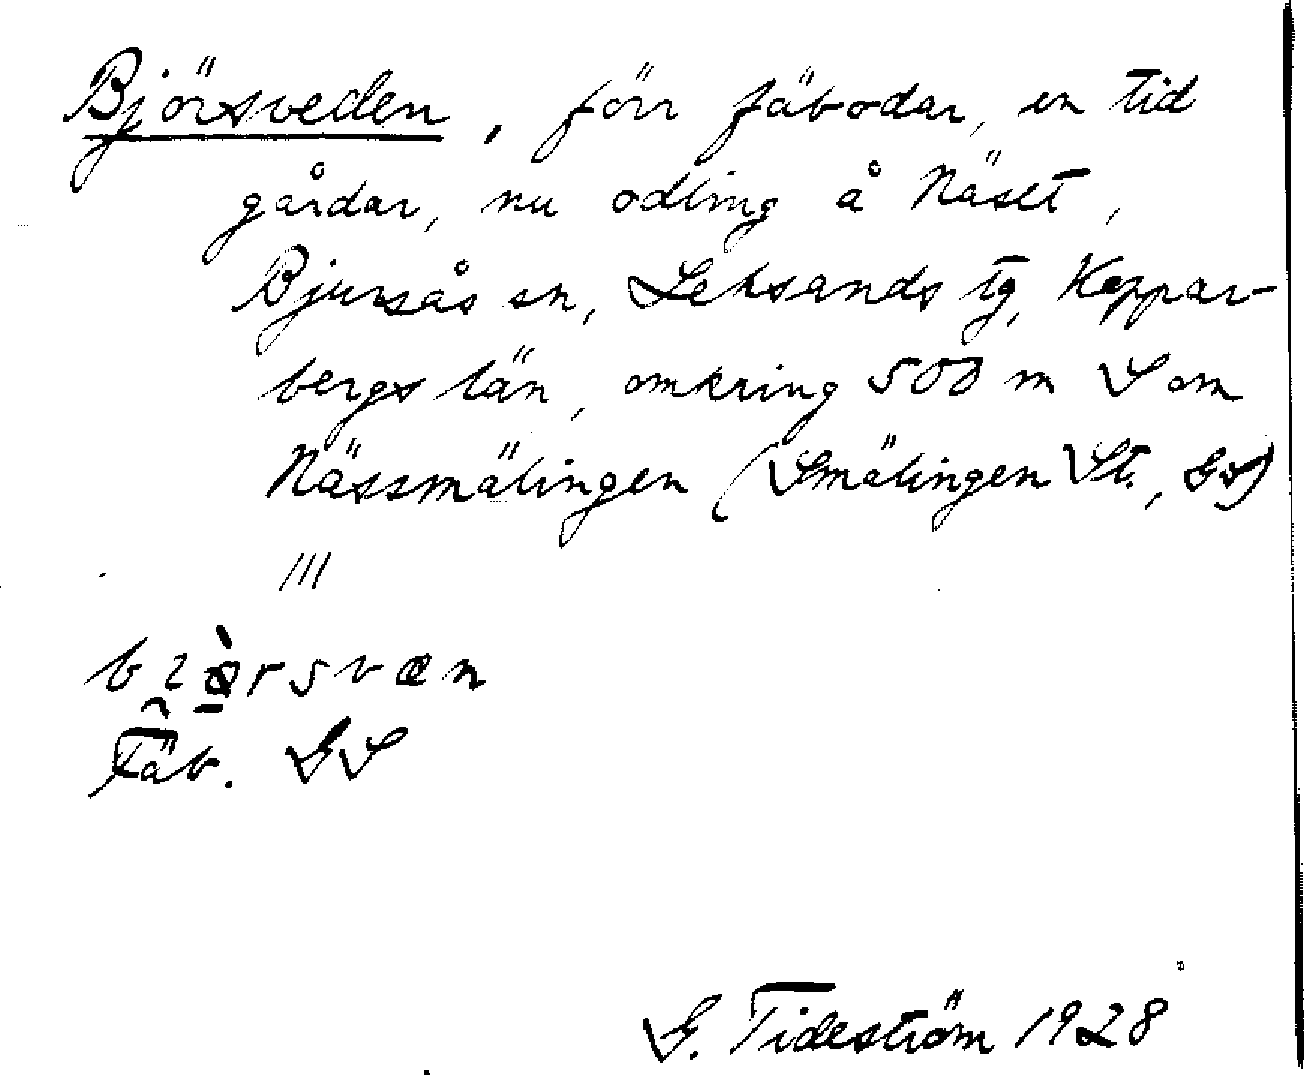 Björsveden, förr fäbodar, en tid
gårdar, nu odling å Näset,
Bjursås sn, Leksands tg, Koppar-
bergs län, omkring 500 m S om
Nässmälingen (Smälingen St., GS)
///
Fäb. GS
G. Tideström 1928